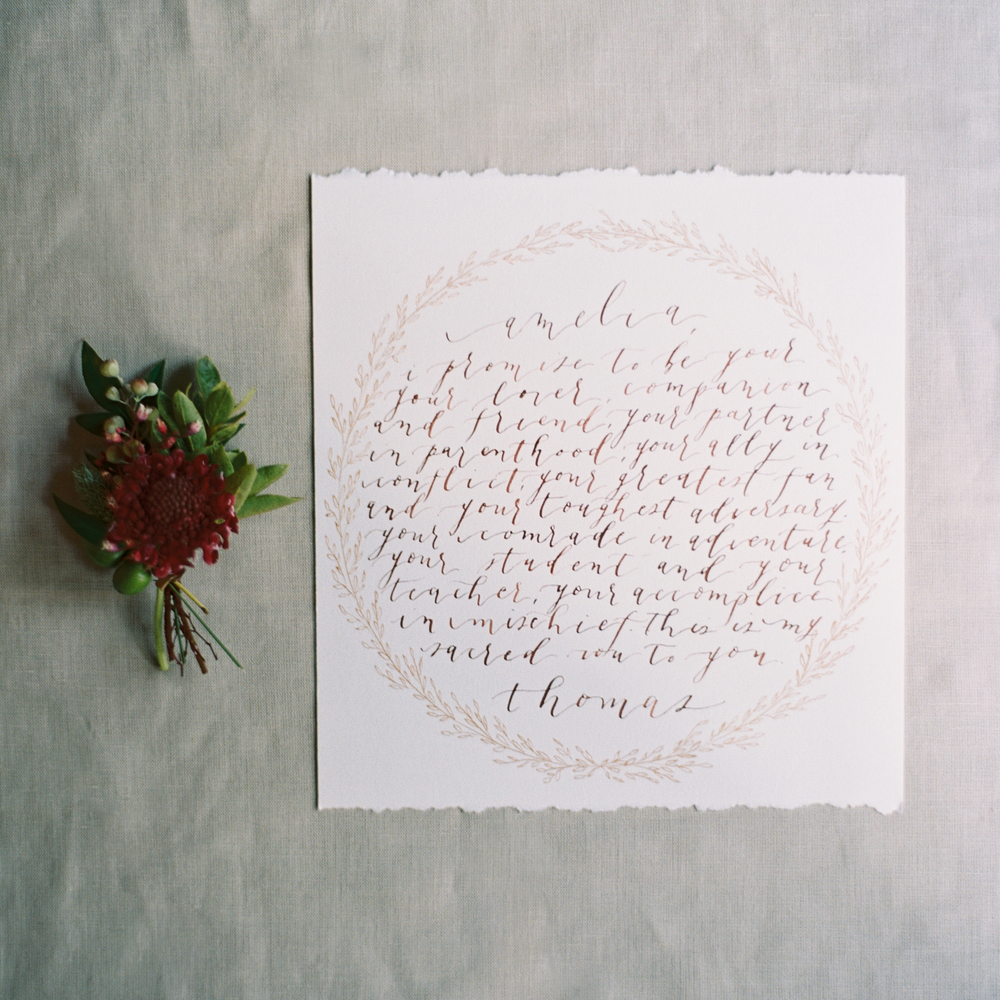 amelia,
i promise to be your
your lover, companion
and friend, your partner
in parenthood, your ally in
conflict, your greatest fan
and your toughest adversary.
your comrade in adventure,
your student and your
teacher, your accomplice
in mischief. This is my
sacred vow to you.
thomas